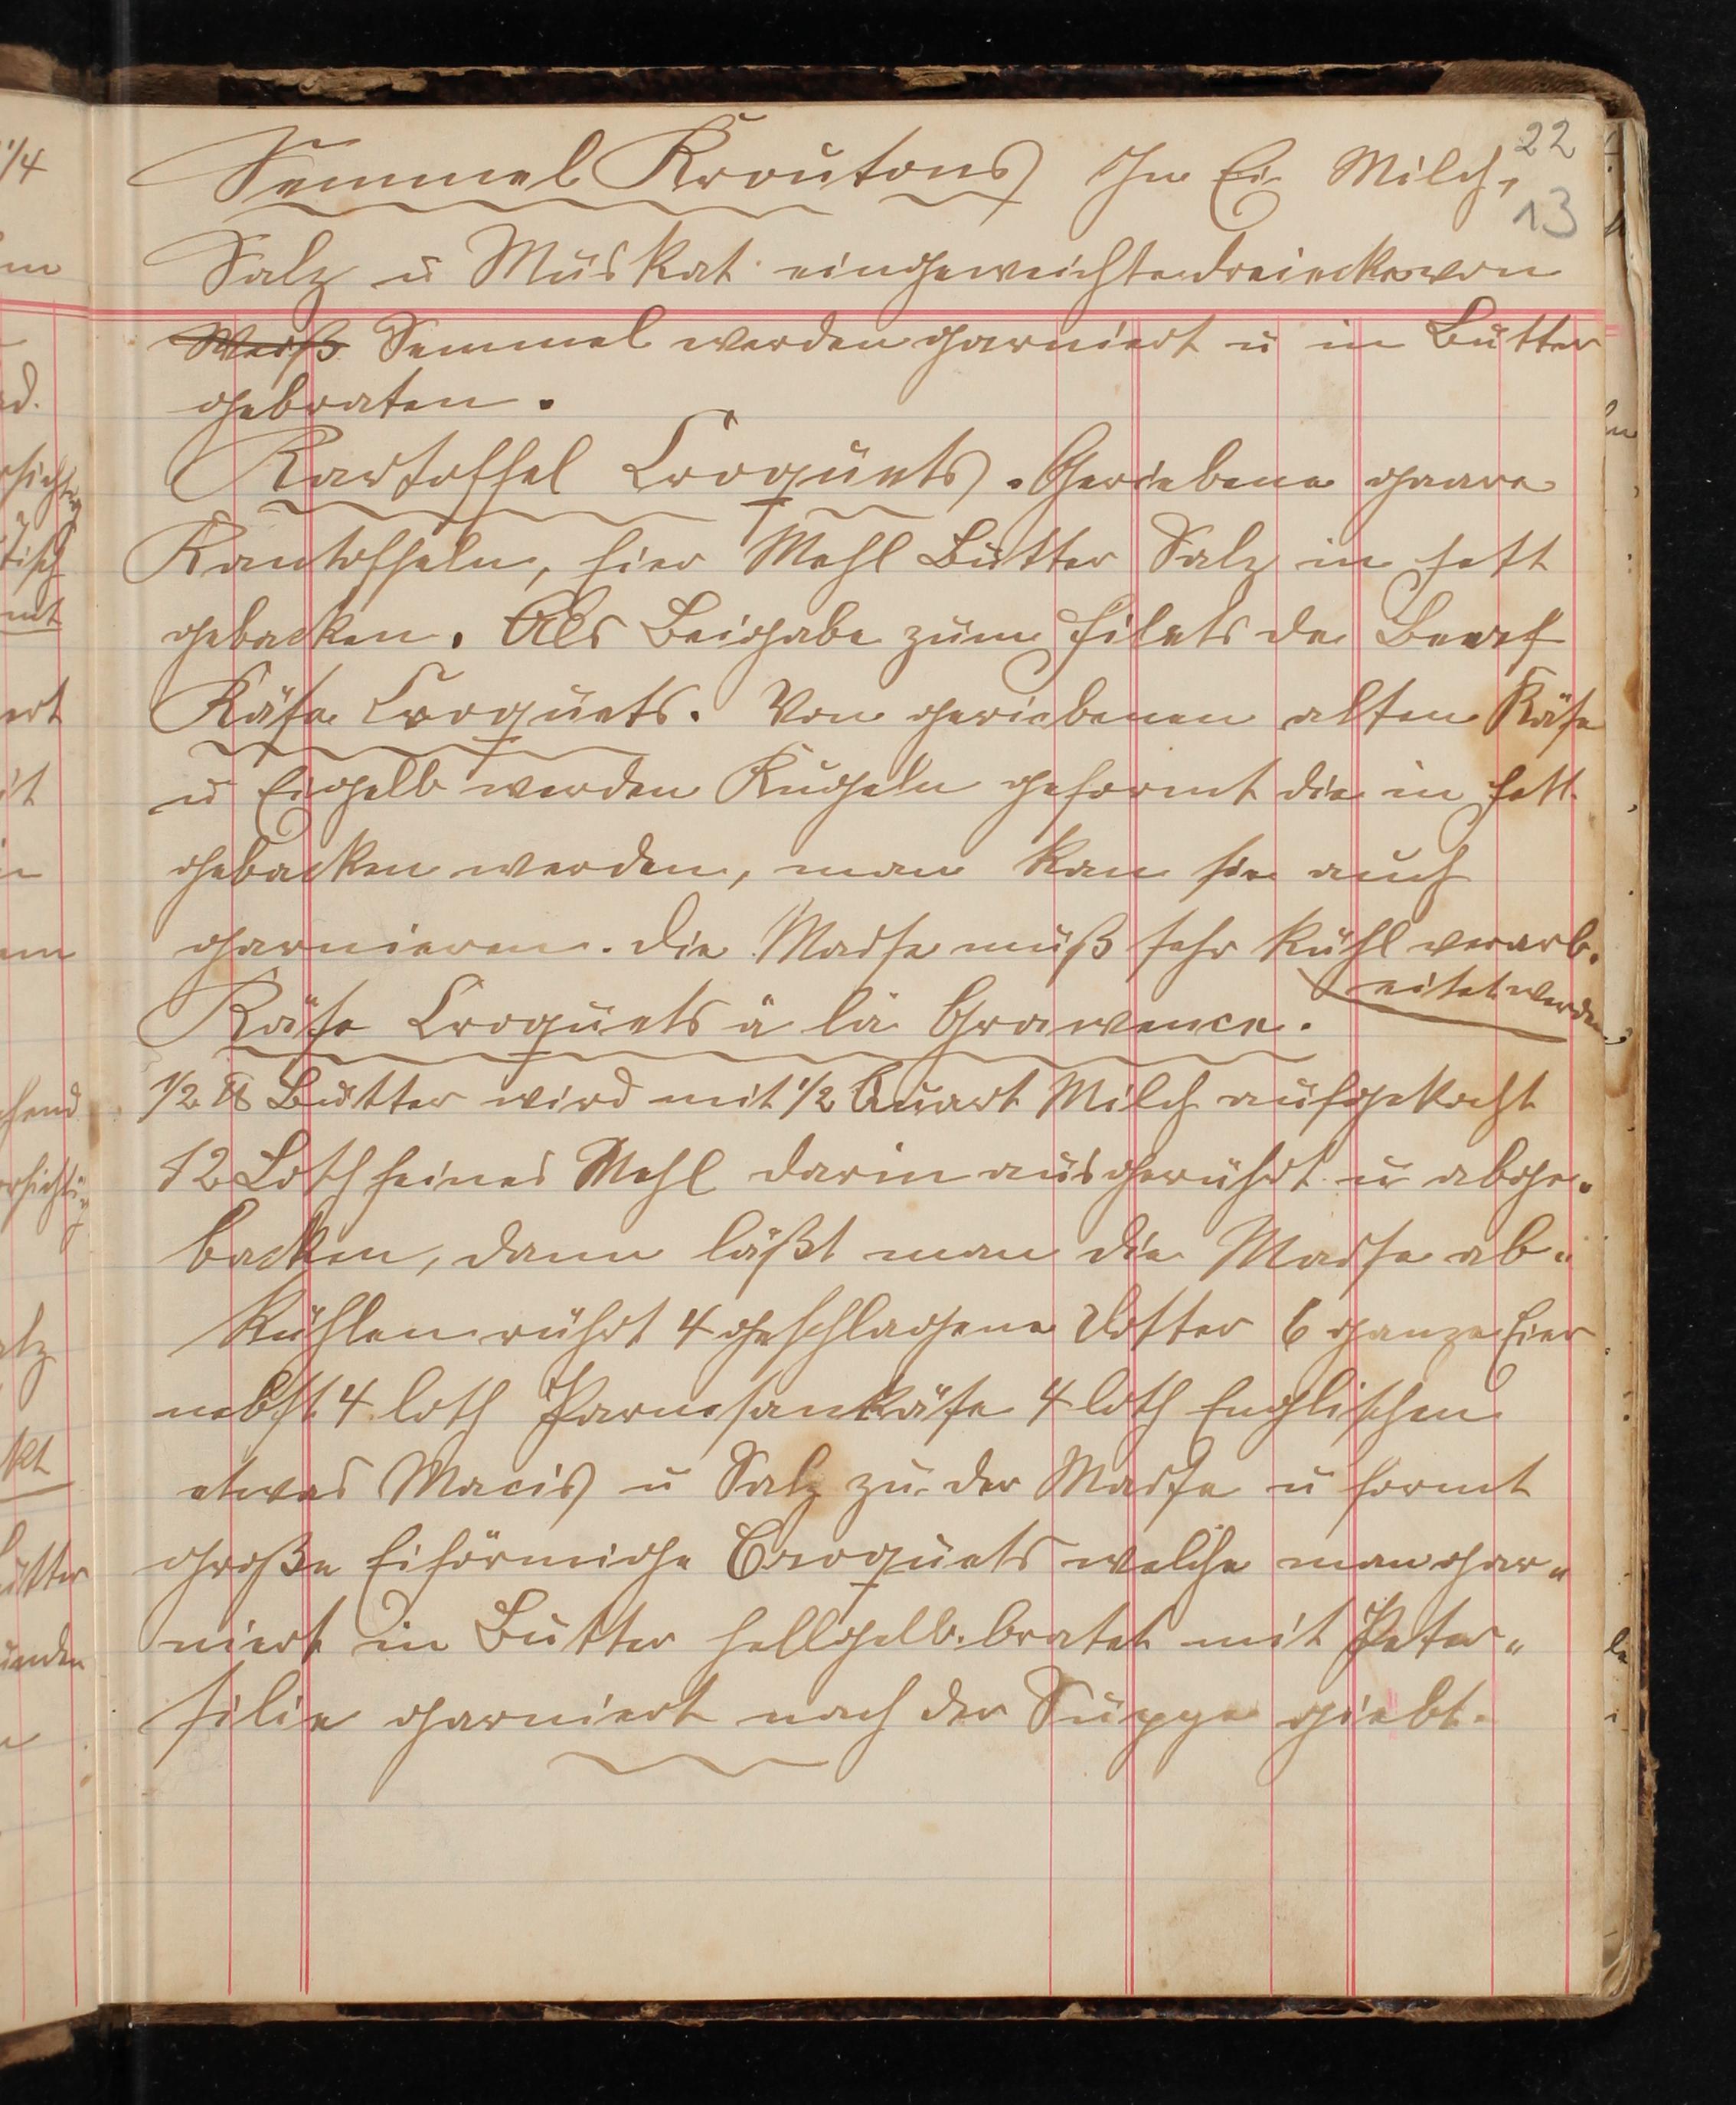 22
Semmel Kroutons In Ei Milch,
13
Salz u Muskat eingeweichte dreiecke von
Weiß Semmel werden garniert u in Butter
gebraten.
Kartoffel Croquets. Geriebene gaare
Kantoffeln, Eier Mehl Butter Salz in Fett
gebacken. Als Beigabe zum Filets de Boeuf
Käse Croquets. Von geriebenen alten Käse
u Eigelb werden Kugeln geformt die in Fett
gebacken werden, man kan sie auch
garnieren. Die Masse muß sehr kühl verarb.
eitet werden
Käse Croquets á lá
1/2 ℔ Butter wird mit 1/2 Quart Milch aufgekocht
12 Loth feines Mehl darin ausgerührt u abge-
backen, dann läßt man die Masse ab-
kühlen rührt 4 geschlagene Dotter 6 ganze Eier
nebst 4 loth Parmesankäse 4 loth Englischen
etwas Macis u Salz zu der Masse u formt
große Eiförmige Croquets welche man gar„
niert in Butter hellgelb bratet mit Peter„
silie garniert nach der Suppe giebt.